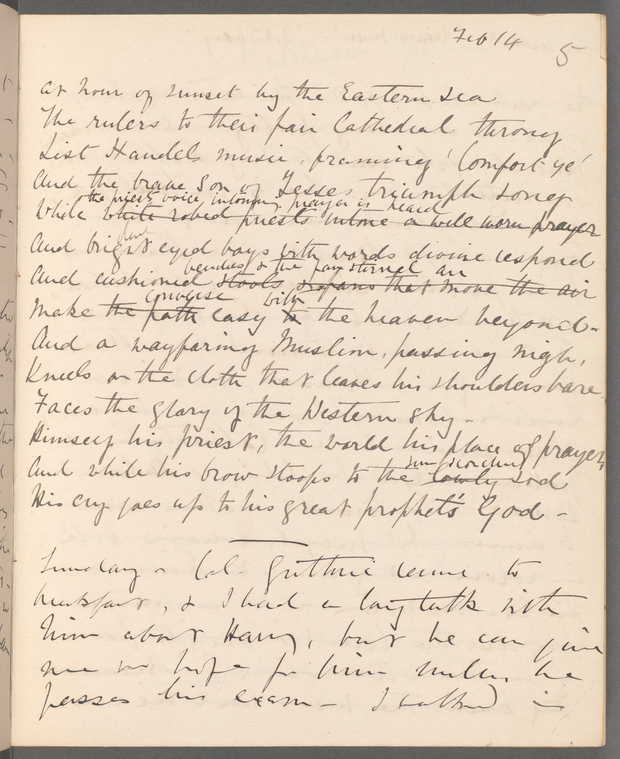 Feb 14
5
At hour of sunset by the Eastern sea
The rulers to their fair Cathedral throng
List Handels music, framing 'Comfort ye'
And the brave Son of Jesses triumph song
the priests voice, intoning prayer is heard
While white robed priests intone a well worn prayer
And bright eyed boys with words divine respond
benches & the
And cushioned stools, organs that move the air
converse with
Make the path easy to the heaven beyond -
And a wayfaring Muslim, passing nigh,
Kneels on the cloth that leaves his shoulders bare
Faces the glory of the Western sky -
Himself his priest, the world his place of prayer,
sun scorched
And while his brow stoops to the lowly sod
His cry goes up to his great prophet's God -
Sunday - Col. Guthrie came to
breakfast, & I had a long talk with
him about Harry, but he can give
me no hope for him unless he
passes his exam - I walked in